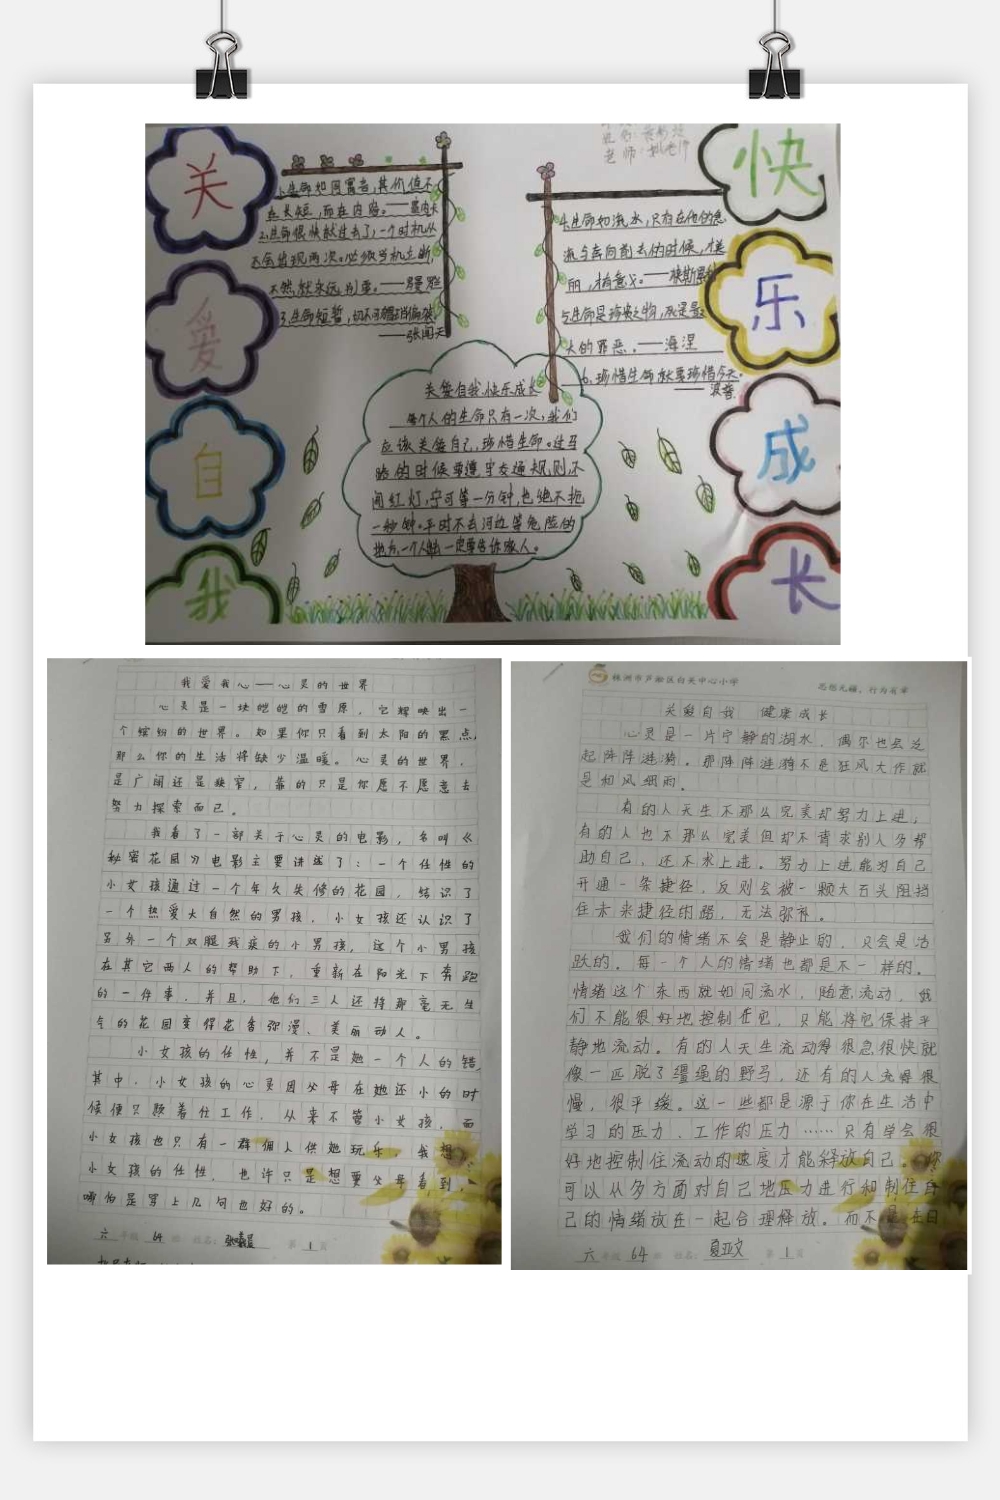 关
爱
自
我
1.生命如同寓言,其价值不
在长短,而在内容。
2.生命很快就过去了,一个时机从
不会出现两次。必须当机立断,
不然就永远别要。
3.生命短暂,切不可
——张闻天
关爱自我,快乐成长
每个人的生命只有一次,我们
应该关爱自己,珍惜生命。过马
路的时候要遵守交通规则,不
闯红灯,宁可等一分钟,也绝不抢
一秒钟。平时不去河边等危险的
地方,一个人 一定要告诉家人。
老师:
4.生命如流水,只有在他的急
流与奔向前去的时候,才美
丽,才有意义。
5.生命是 之物,死是最
大的罪恶。——海涅
6.珍惜生命就要珍惜今天。
快
乐
成
长
我爱我心——心灵的世界
心灵是一块皑皑的雪原,它辉映出一
个缤纷的世界。如果你只看到太阳的黑点,
那么你的生活将缺少温暖。心灵的世界,
是广阔还是狭窄,靠的只是你愿不愿意去
努力探索而已。
我看了一部关于心灵的电影,名叫《
秘密花园》电影主要讲述了:一个任性的
小女孩通过一个年久失修的花园,结识了
一个热爱大自然的男孩,小女孩还认识了
另外一个双腿残疾的小男孩,这个小男孩
在其它两人的帮助下,重新在阳光下奔跑
的一件事,并且,他们三人还将那毫无生
气的花园变得花香弥漫、美丽动人。
小女孩的任性,并不是她一个人的错,
其中,小女孩的心灵因父母在她还小的时
候便只顾着住工作,从来不管小女孩,而
小女孩也只有一群佣人供她玩乐,我想,
小女孩的任性,也许只是想要父母看到,
哪怕是骂上几句也好的。
六 年级 64 班 姓名:张曦晨 第 1 页
株洲市芦淞区白关中心小学
思想无疆,行为有章
关爱自我 健康成长
心灵是一片宁静的湖水,偶尔也会泛
起阵阵涟漪。那阵阵涟漪不是狂风大作就
是和风细雨。
有的人天生不那么完美却努力上进,
有的人也不那么完美但却不请求别人多帮
助自己,还不求上进。努力上进能为自己
开通一条捷径,反则会被一颗大石头阻挡
住未来捷径的路,无法弥补。
我们的情绪不会是静止的,只会是活
跃的。每一个人的情绪也都是不一样的。
情绪这个东西就如同流水,随意流动,我
们不能很好地控制住它,只能将它保持平
静地流动。有的人天生流动得很急很快就
像一匹脱了缰绳的野马,还有的人流得很
慢,很平缓。这一些都是源于你在生活中
学习的压力,工作的压力……只有学会很
好地控制住流动的速度才能释放自己。你
可以从多方面对自己地压力进行和制住自
己的情绪放在一起合理释放。而不是在日
六 年级 64 班 姓名:夏亚文 第 1 页